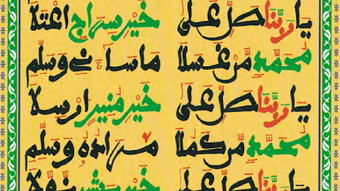 يا ربنا صل على خير سراج اعتلا
محمد من غسلا ما ساءني وسلم
يا ربنا صل على خير منير ارسلا
محمد من كملا مراده وسلم
يا ربنا صل على خير بشير